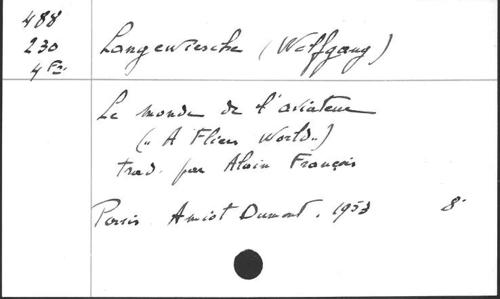 488
230
4 Fr.
Langewiesche (Wolfgang)
Le monde de l'aviateur
(„ A Fliers World„)
trad. par Alain François
Paris. Amiot Dumont. 1953 8°